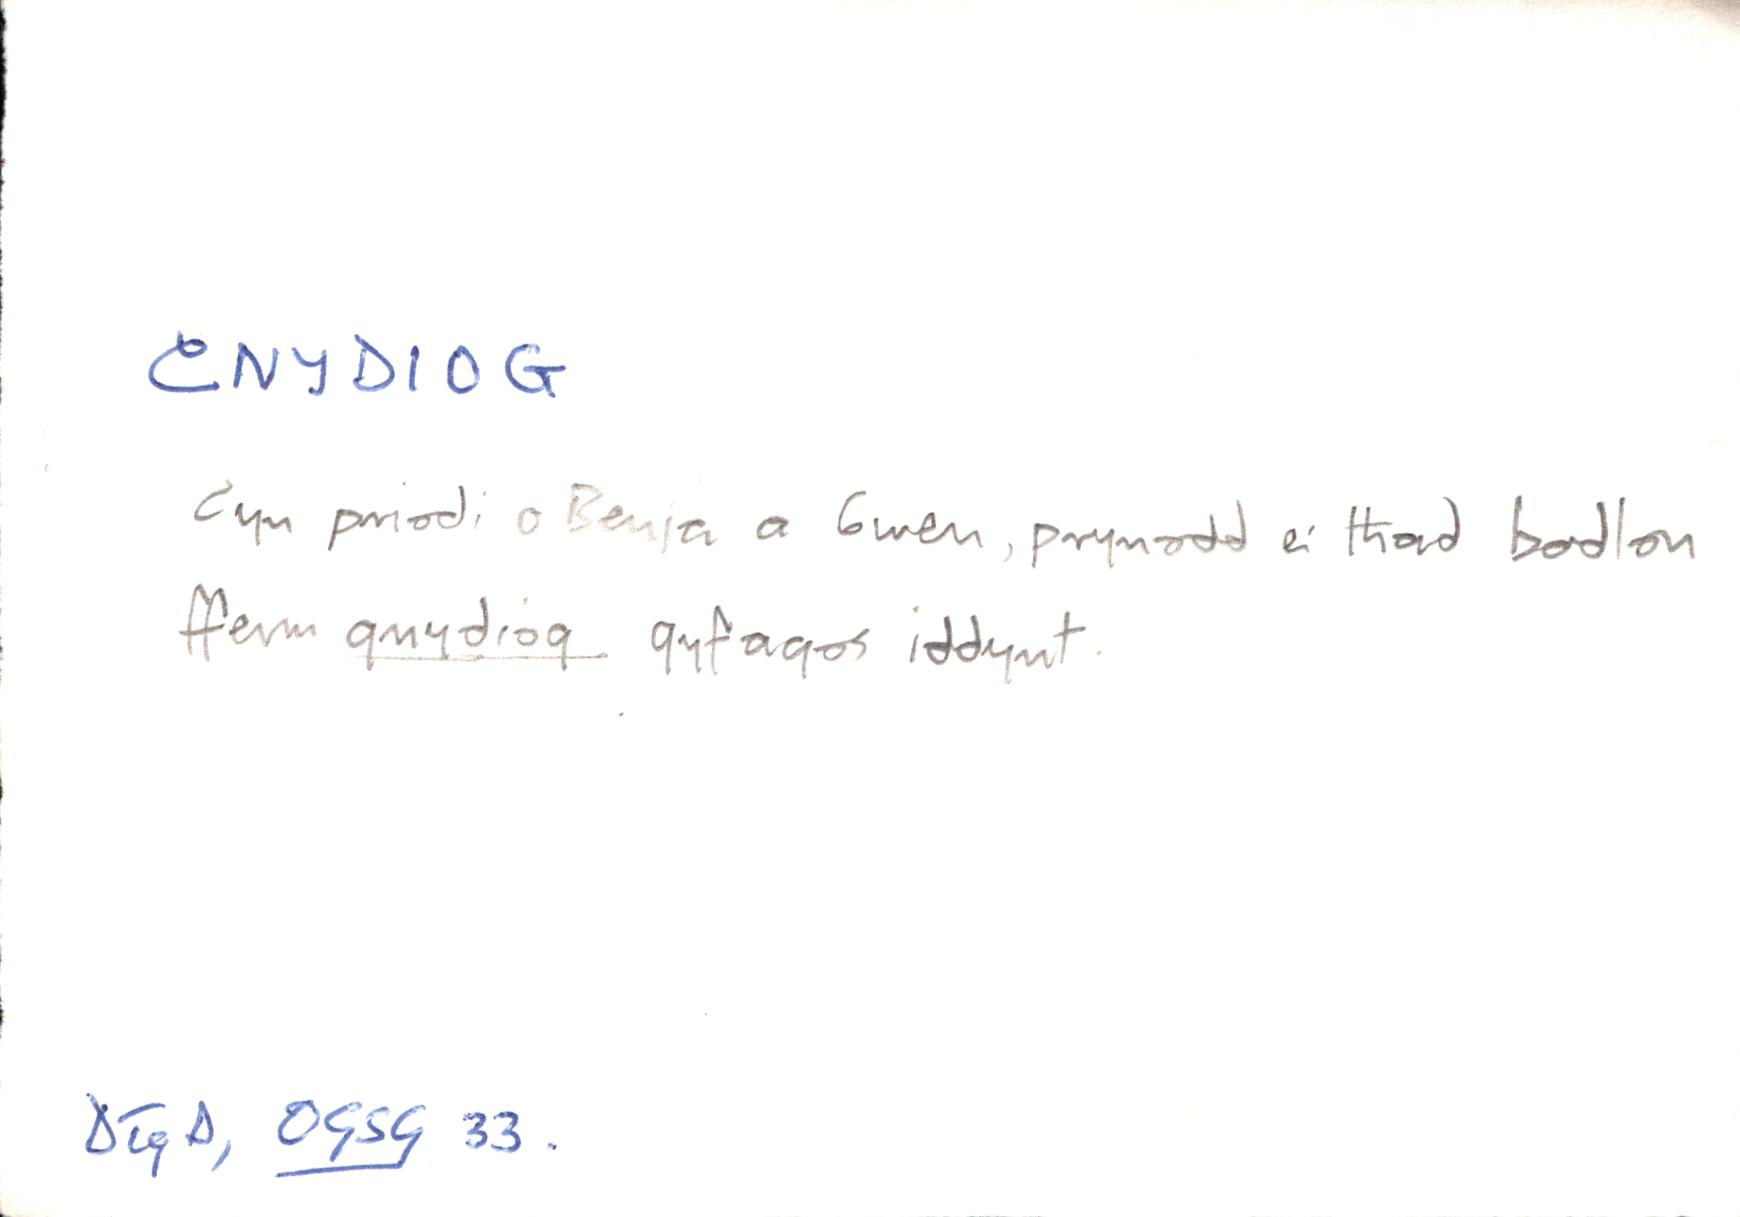 CNYDIOG
Cyn priodi o Benja a Gwen, prynodd ei thad bodlon
fferm gnydiog gyfagos iddynt.
DTgD, OGSG 33.